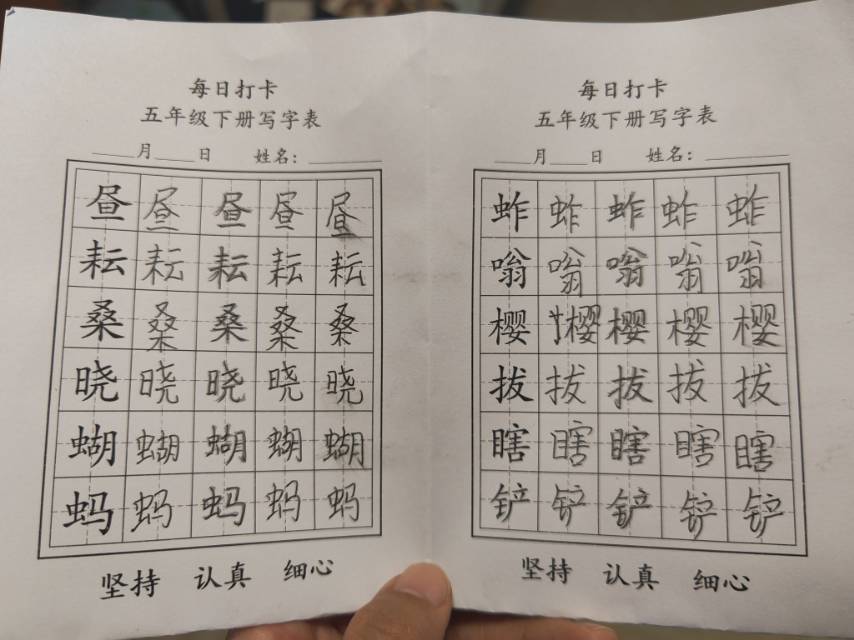 每日打卡
五年级下册写字表
月 日 姓名：
昼 昼 昼 昼 昼
耘 耘 耘 耘 耘
桑 桑 桑 桑 桑
晓 晓 晓 晓 晓
蝴 蝴 蝴 蝴 蝴
蚂 蚂 蚂 蚂 蚂
坚持 认真 细心
每日打卡
五年级下册写字表
月 日 姓名：
蚱 蚱 蚱 蚱 蚱
嗡 嗡 嗡 嗡 嗡
樱 樱 樱 樱 樱
拔 拔 拔 拔 拔
瞎 瞎 瞎 瞎 瞎
铲 铲 铲 铲 铲
坚持 认真 细心